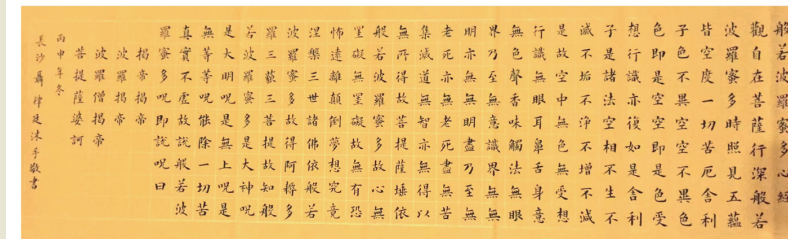 般若波羅蜜多心經
觀自在菩薩行深般若
波羅蜜多時照見五蘊
皆空度一切苦厄舍利
子色不異空空不異色
色即是空空即是色受
想行識亦復如是舍利
子是諸法空相不生不
滅不垢不淨不增不減
是故空中無色無受想
行識無眼耳鼻舌身意
無色聲香味觸法無眼
界乃至無意識界無無
明亦無無明盡乃至無
老死亦無老死盡無苦
集滅道無智亦無得以
無所得故菩提薩埵依
般若波羅蜜多故心無
罣礙無罣礙故無有恐
怖遠離顛倒夢想究竟
涅槃三世諸佛依般若
波羅蜜多故得阿耨多
羅三藐三菩提故知般
若波羅蜜多是大神呪
是大明呪是無上呪是
無等等呪能除一切苦
真實不虛故說般若波
羅蜜多呪即說呪曰
揭帝揭帝
波羅揭帝
波羅僧揭帝
菩提薩婆訶
丙申年冬
長沙聶沐手敬書